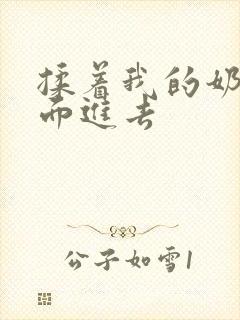 揉着我的奶
而进去
公子如雪1